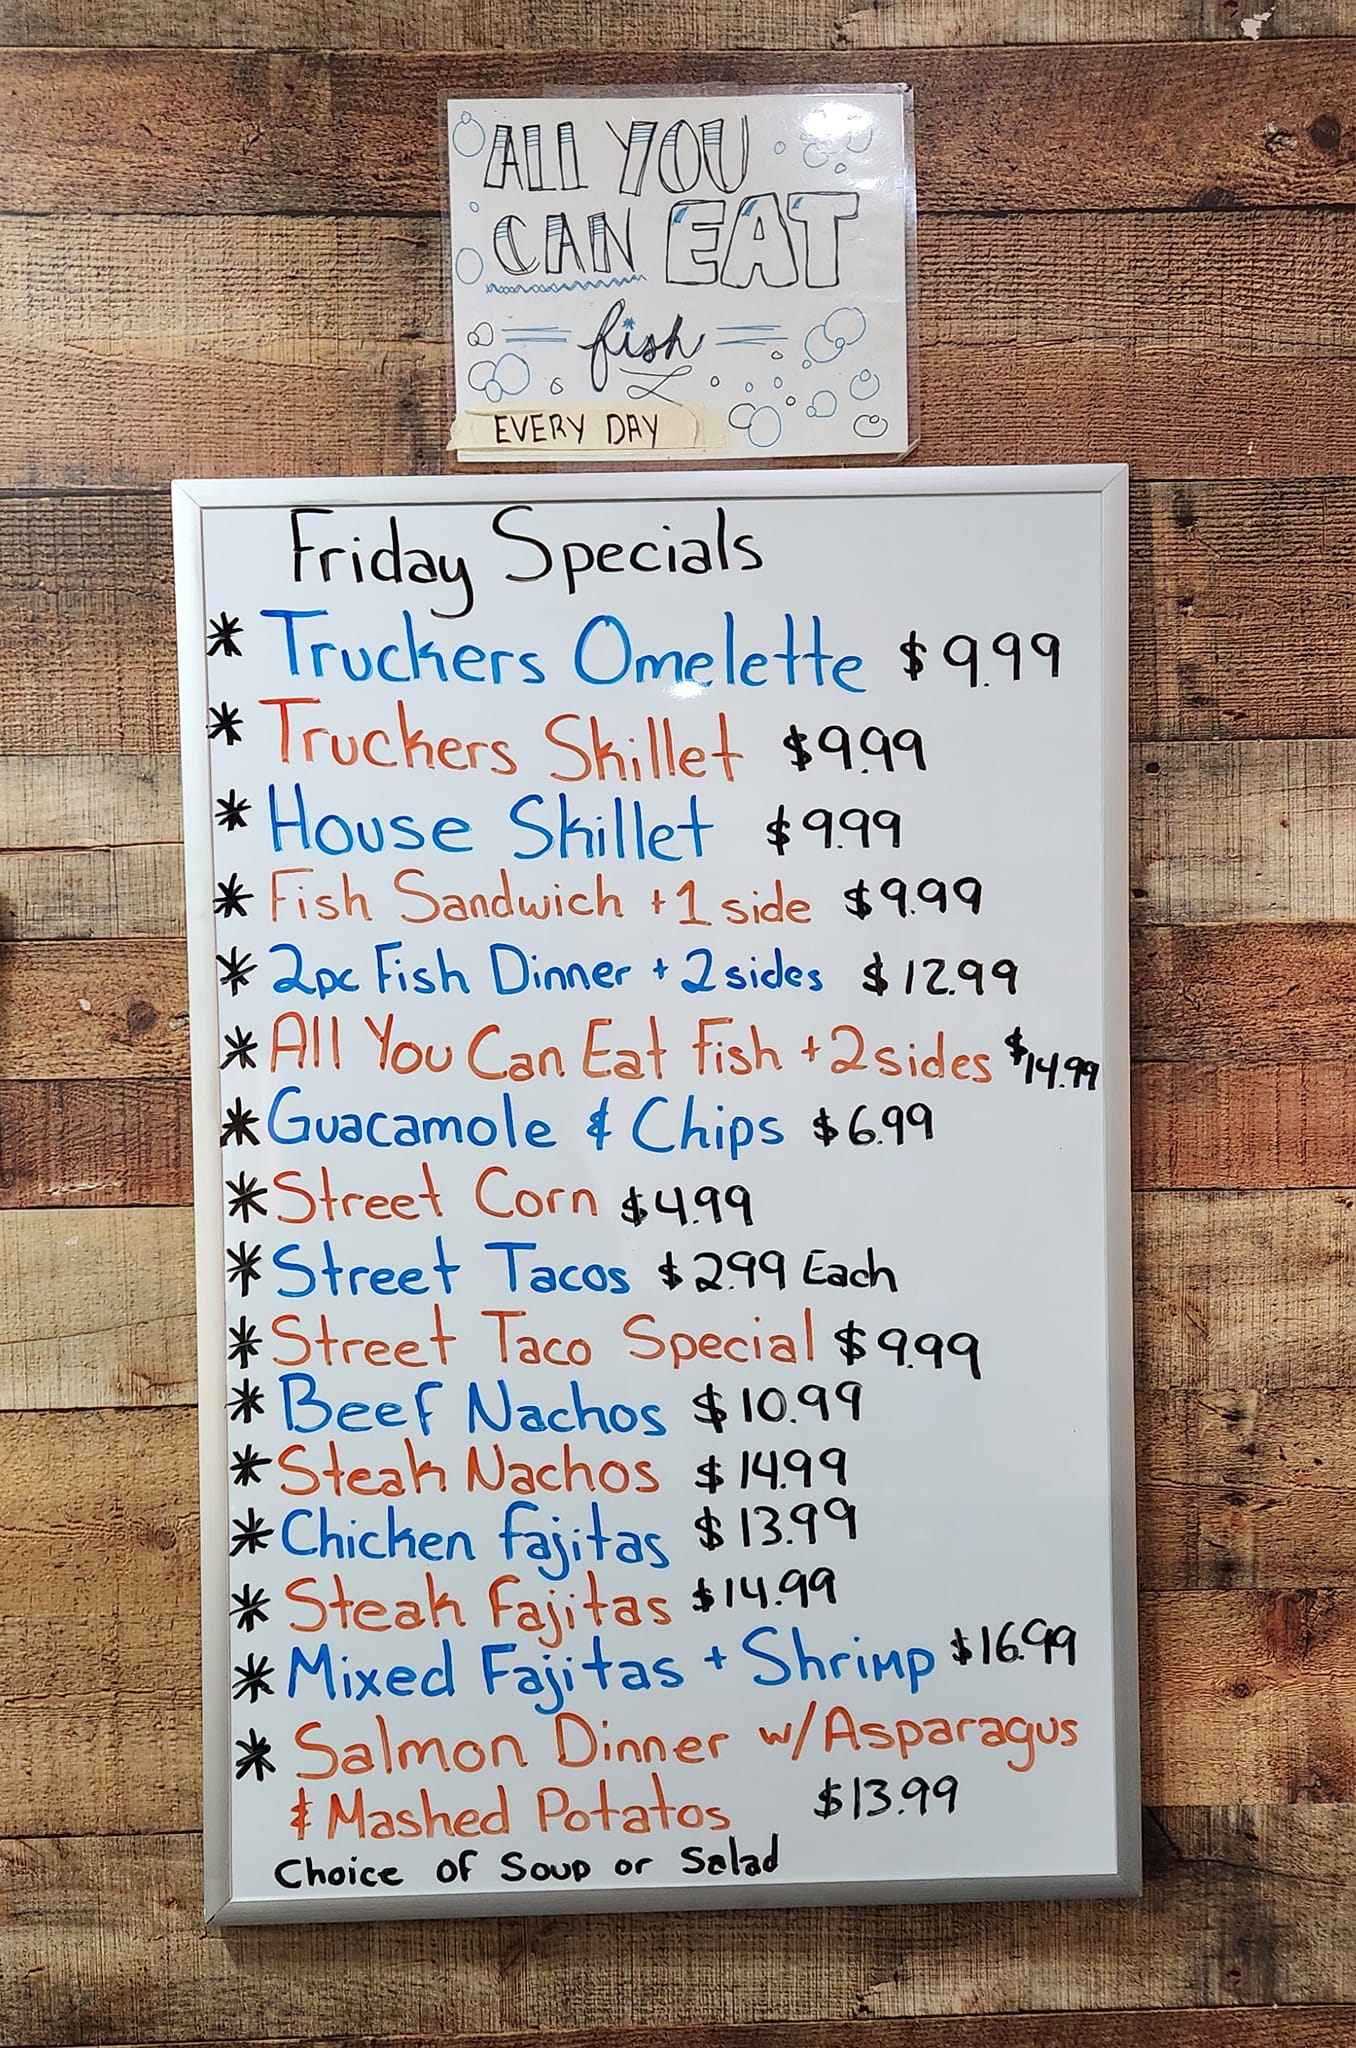 ALL YOU
CAN EAT
fish
EVERY DAY
Friday Specials
* Truckers Omelette $9.99
* Truckers Skillet $9.99
* House Skillet $9.99
* Fish Sandwich + 1 side $9.99
* 2pc Fish Dinner + 2 sides $12.99
* All You Can Eat Fish + 2 sides $14.99
* Guacamole & Chips $6.99
* Street Corn $4.99
* Street Tacos $2.99 Each
* Street Taco Special $9.99
* Beef Nachos $10.99
* Steak Nachos $14.99
* Chicken Fajitas $13.99
* Steak Fajitas $14.99
* Mixed Fajitas + Shrimp $16.99
* Salmon Dinner w/Asparagus
& Mashed Potatos $13.99
Choice of Soup or Salad